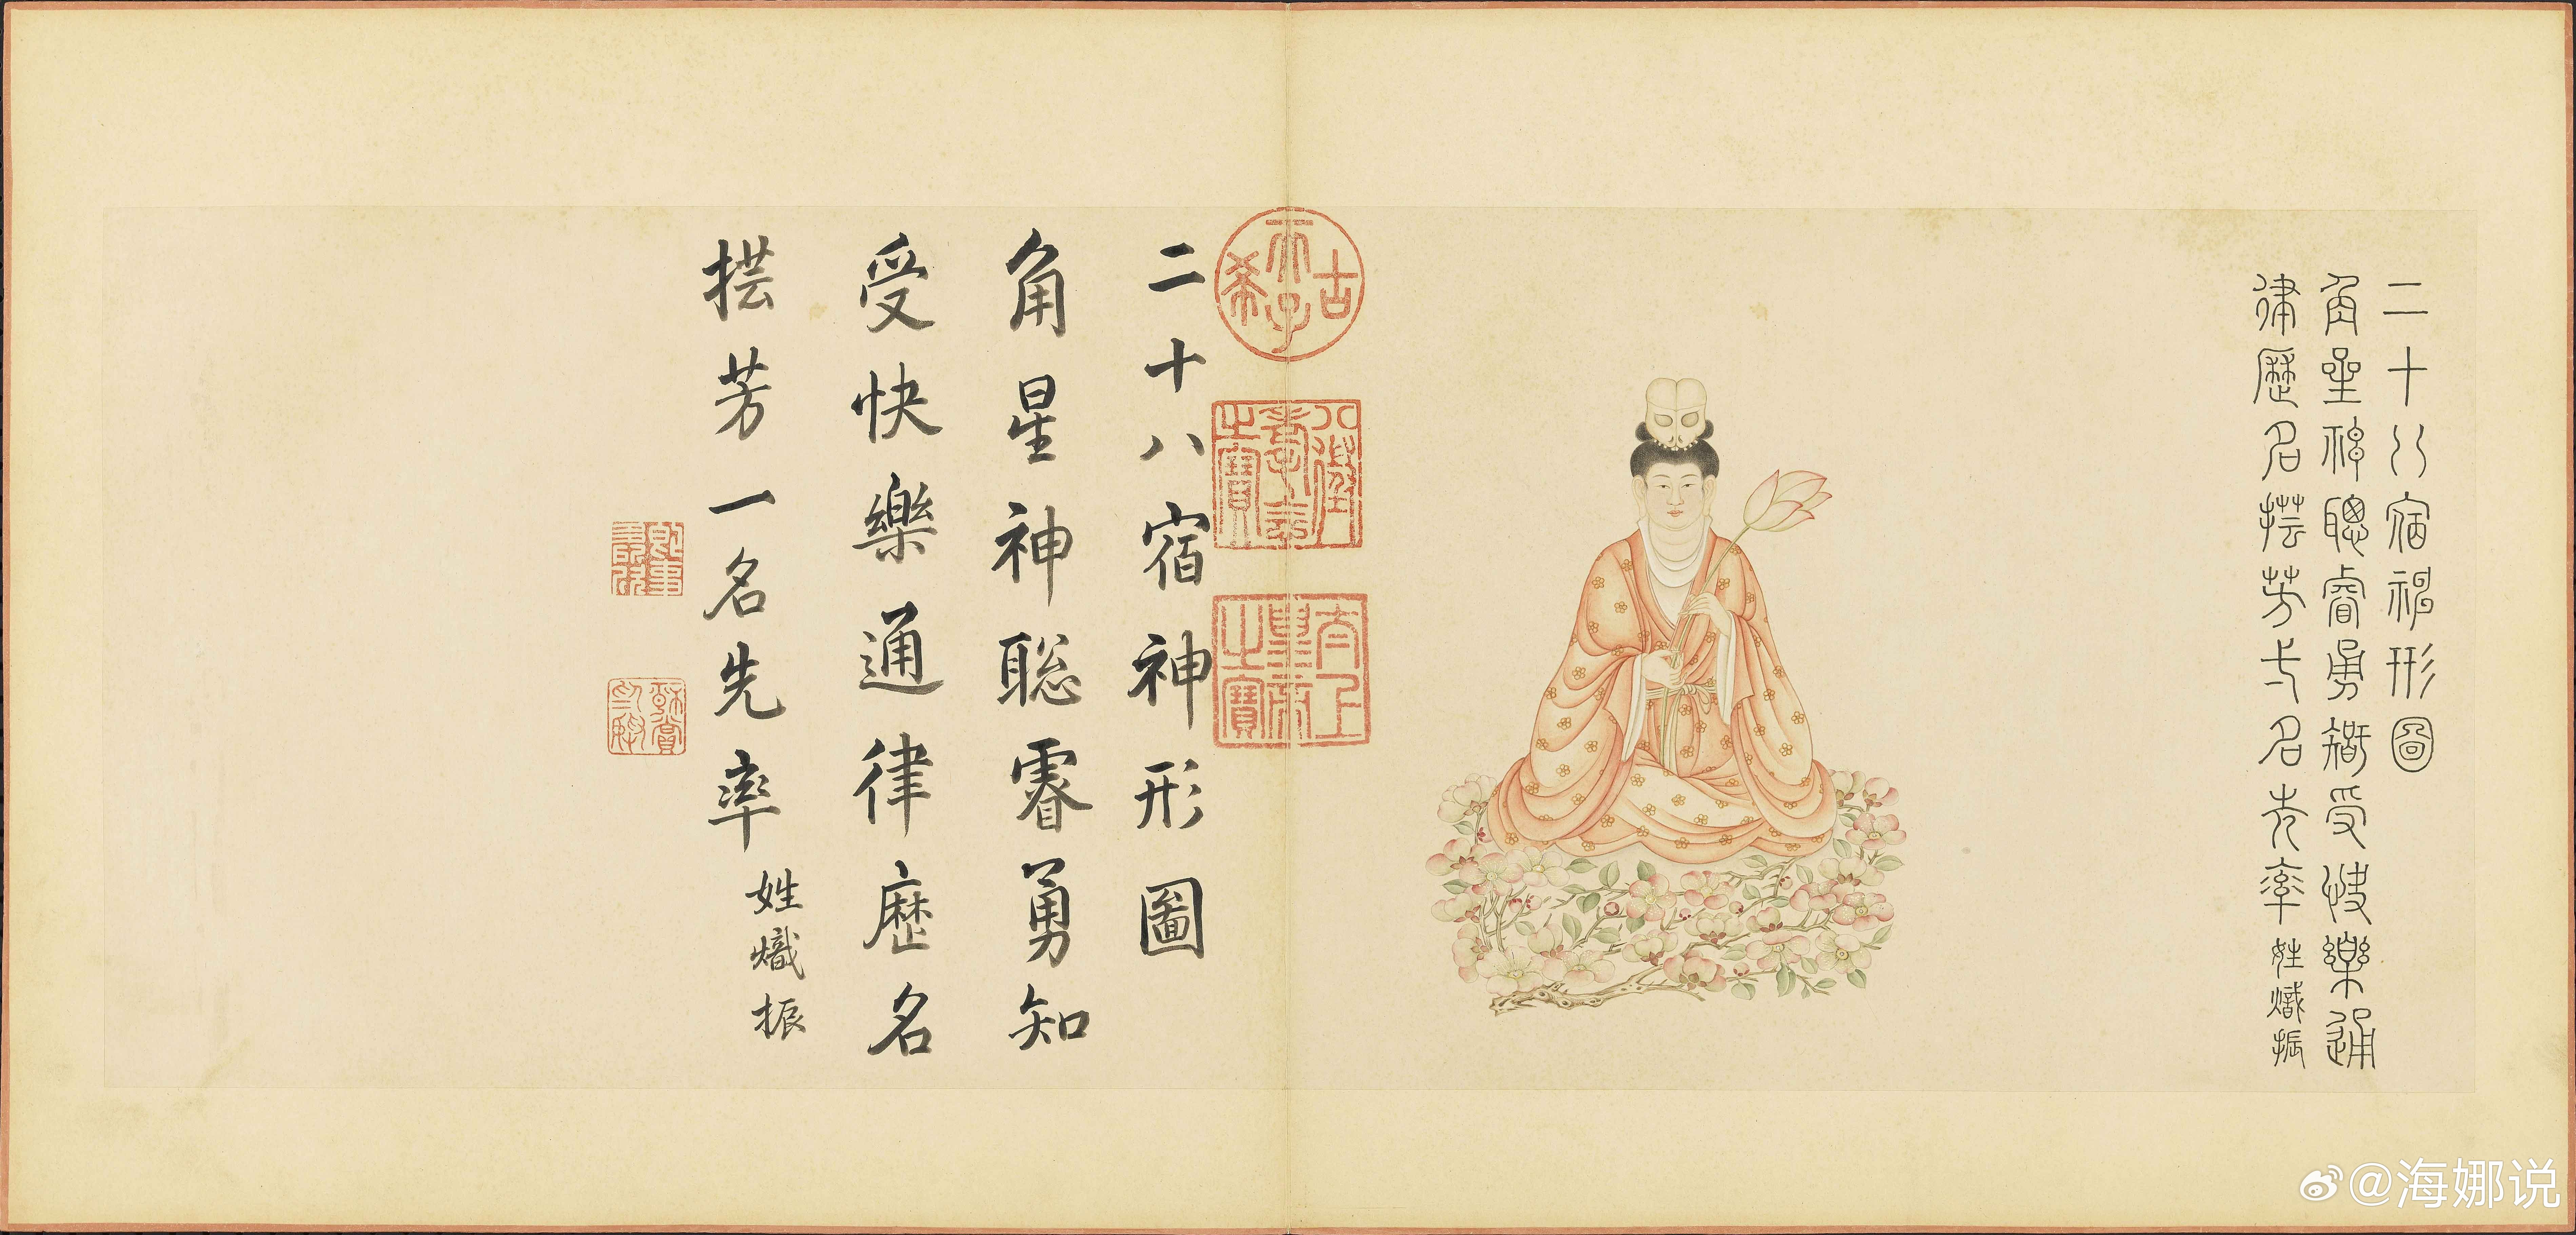 二十八宿神形圖
角星神聰睿勇智受快樂通
律歷名捳芳一名先率姓熾振
古希天子
八徵耄念之寶
太上皇帝之寶
二十八宿神形圖
角星神聡睿勇知
受快樂通律歷名
芳一名先率姓熾振
@海娜说